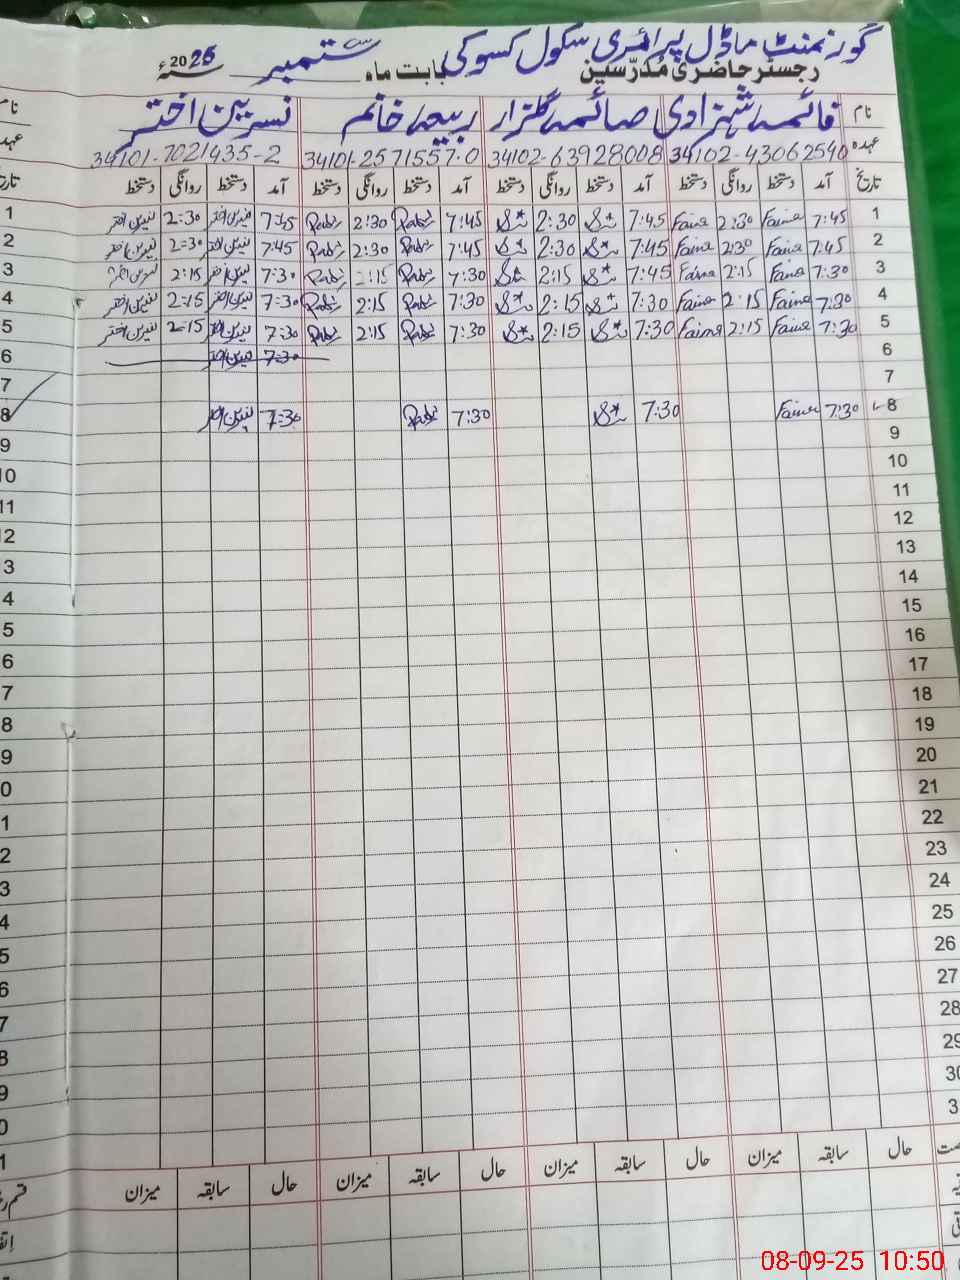 گورنمنٹ ماڈل پرائمری سکول کسوکی
رجسٹر حاضری مُدرّسین بابت ماہ ستمبر 2025ء
نام فائمہ شہزادی صائمہ گلزار ربیعہ خانم نسرین اختر نام
عہدہ 34102-43062540 34102-63928008 34101-2571557-0 34101-7021435-2 عہدہ
تاریخ آمد دستخط روانگی دستخط آمد دستخط روانگی دستخط آمد دستخط روانگی دستخط آمد دستخط روانگی دستخط تاریخ
1 7:45 Faima 2:30 Faima 7:45 2:30 7:45 Rabi 2:30 Rabi 7:45 نسرین اختر 2:30 نسرین اختر 1
2 7:45 Faima 2:30 Faima 7:45 2:30 7:45 Rabi 2:30 Rabi 7:45 نسرین اختر 2:30 نسرین اختر 2
3 7:30 Faima 2:15 Faima 7:45 2:15 7:30 Rabi 2:15 Rabi 7:30 نسرین اختر 2:15 نسرین اختر 3
4 7:30 Faima 2:15 Faima 7:30 2:15 7:30 Rabi 2:15 Rabi 7:30 نسرین اختر 2:15 نسرین اختر 4
5 7:30 Faima 2:15 Faima 7:30 2:15 7:30 Rabi 2:15 Rabi 7:30 نسرین اختر 2:15 نسرین اختر 5
6 7:30 نسرین اختر 6
7 7
8 7:30 Faima 7:30 7:30 Rabi 7:30 نسرین اختر 8
9 9
10 10
11 11
12 2
13 3
14 4
15 5
16 6
17 7
18 8
19 9
20 0
21 1
22 2
23 3
24 4
25 5
26 6
27 7
28 8
29 9
30 0
3 1
حال سابقہ میزان حال سابقہ میزان حال سابقہ میزان حال سابقہ میزان
08-09-25 10:50